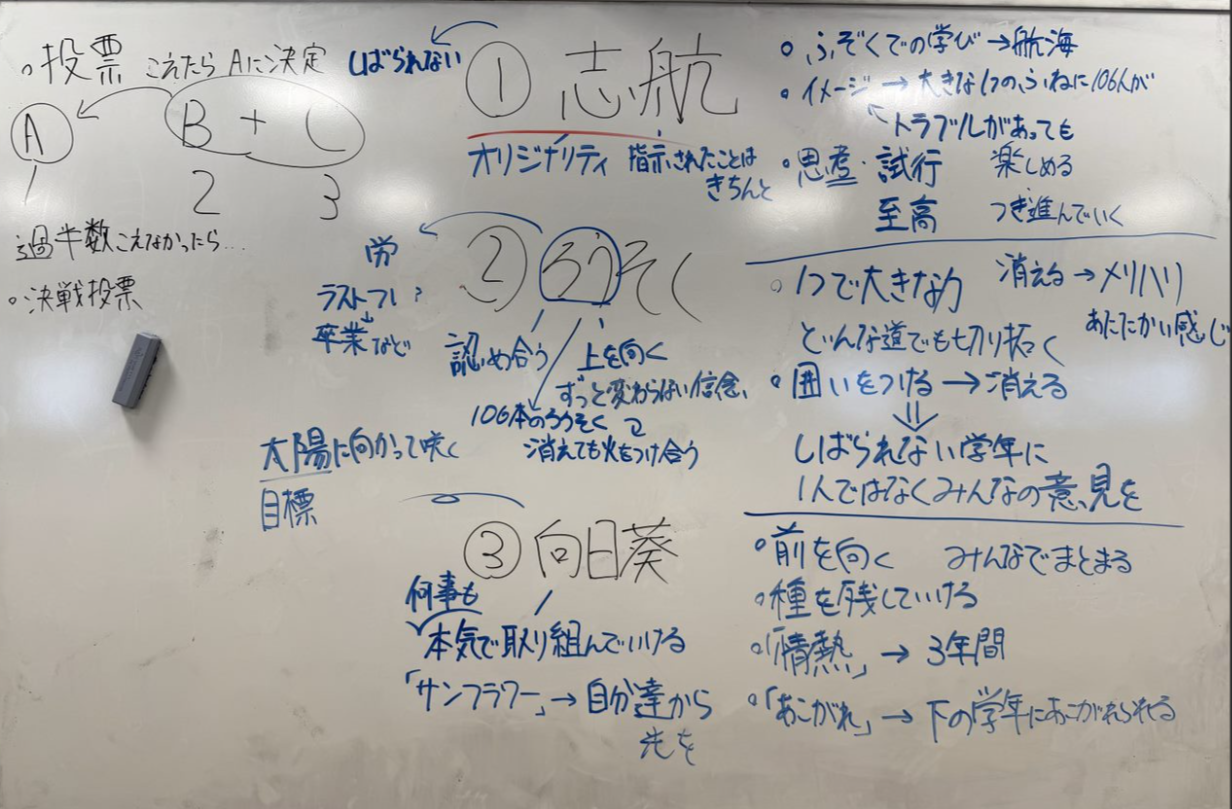 。投票 こえたらAに決定
A B + C
1 2 3
過半数こえなかったら...
。決戦投票
しばられない
① 志航
オリジナリティ 指示されたことは
きちんと
。ふぞくでの学び→航海
。イメージ → 大きな1つのふねに106人が
トラブルがあっても
。思考・試行 楽しめる
至高 つき進んでいく
② ろうそく
労
ラスト
卒業など
認め合う 上を向く
ずっと変わらない信念、
106本のろうそく
消えても火をつけ合う
。1つで大きな力 消える → メリハリ
あたたかい感じ
どんな道でも切り拓く
。囲いをつける → 消える
⇓
しばられない学年に
1人ではなくみんなの意見を
太陽に向かって咲く
目標
③ 向日葵
何事も
本気で取り組んでいける
「サンフラワー」→ 自分達から
光を
。前を向く みんなでまとまる
。種を残していける
。「情熱」→ 3年間
。「あこがれ」→ 下の学年にあこがれられる